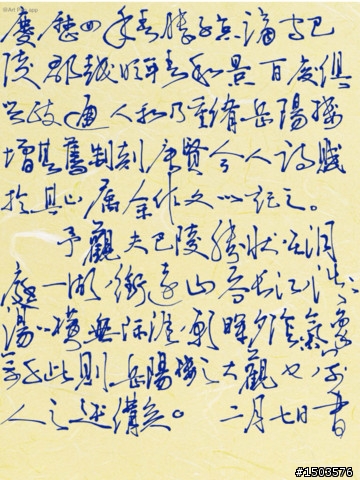 慶歷四年春滕子京謫守巴
陵郡越明年春和景百廢俱
興政通人和乃重脩岳陽樓
增其舊制刻唐賢今人詩賦
於其上屬余作文以記之。
予觀夫巴陵勝狀在洞
庭一湖銜遠山吞長江浩〻
湯〻橫無際涯朝暉夕陰氣象
萬千此則岳陽樓之大觀也前
人之述備矣。 二月七日書
#1503576